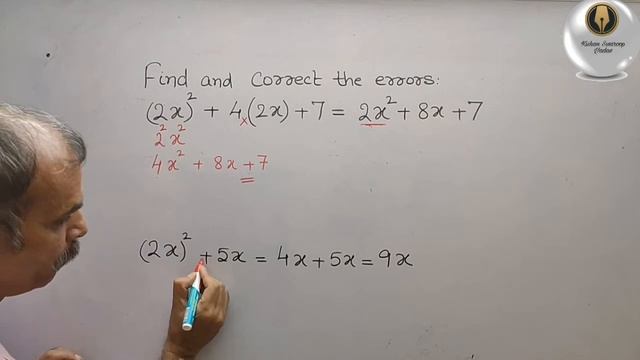 Find and Correct the errors:
(2x)² + 4(2x) + 7 = 2x² + 8x + 7
x
2² x²
4x² + 8x + 7
(2x)² + 5x = 4x + 5x = 9x
Kishan Swaroop
Yadav